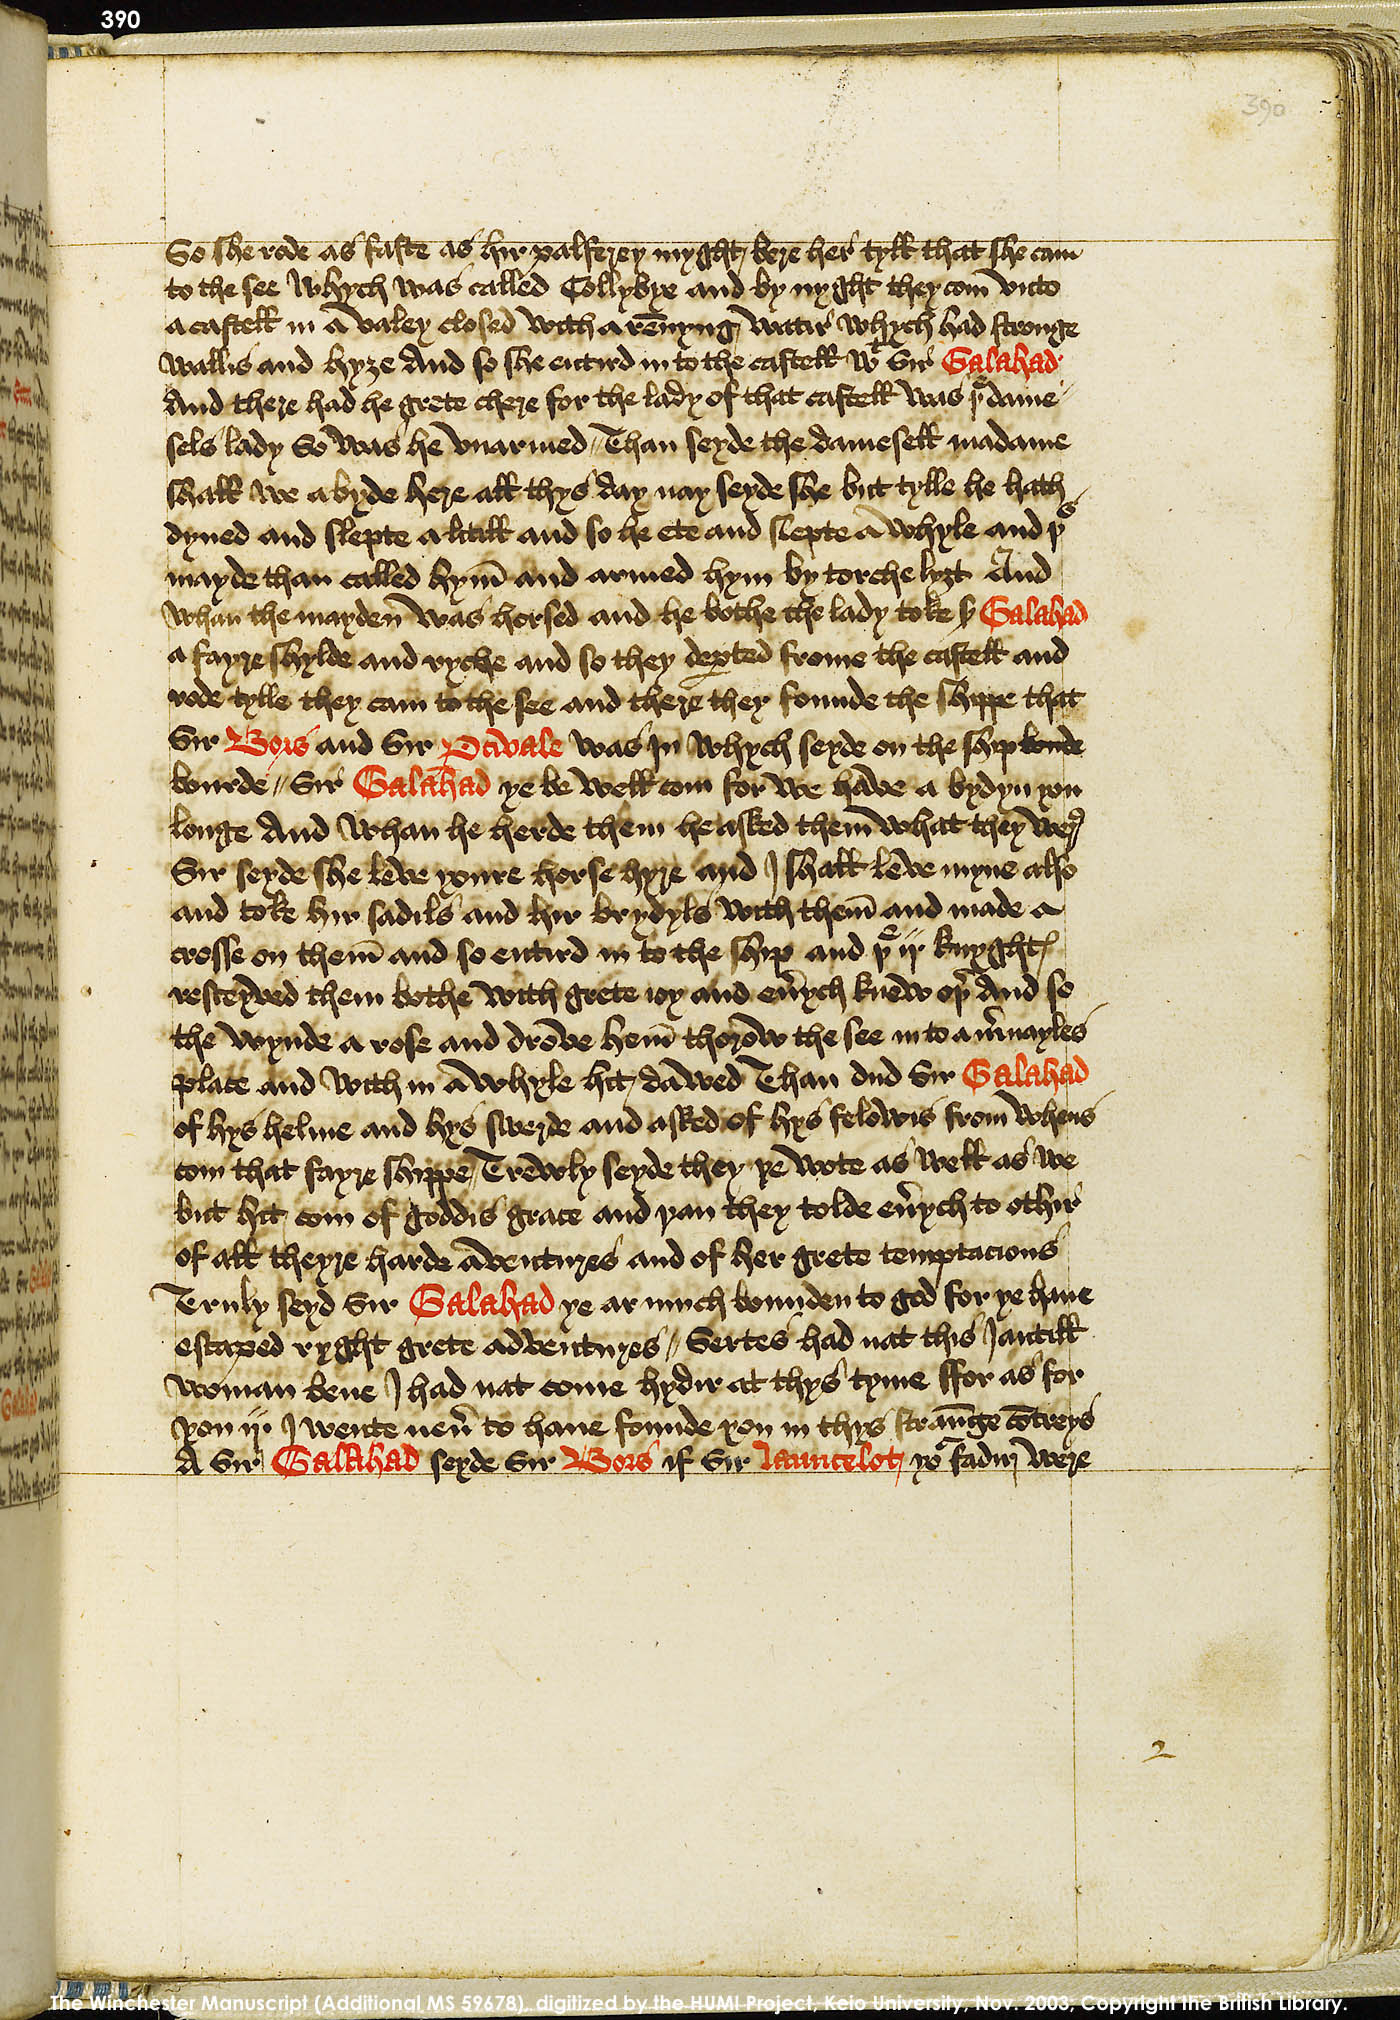 390
390
So she rode as faste as hir palferey myght bere her tyll that she cam
to the see whych was called Collybye and by nyght they com vnto
a castell in a valey closed with a rēnyng watir whych had stronge
wallis and hyze And so she entird in to the castell wᵗ Sir Galahad
And there had he grete chere for the lady of that castell was þᵉ dame
sels lady So was he vnarmed // Than seyde the damesell madame
shall we abyde here all thys day nay seyde she but tylle he hath
dyned and slepte a litill and so he ete and slepte a whyle and þᵉ
mayde than called hym̄ and armed hym by torche lyzt And
whan the mayden̄ was horsed and he bothe the lady toke sʳ Galahad
a fayre shylde and ryche and so they depted frome the castell and
rode tylle they cam to the see and there they founde the shippe that
Sir Bors and Sir Pcivale was In whych seyde on the ship bonde
bourde // Sir Galahad ye be well com for we have a bydyn you
longe And whan he herde them he asked them̄ what they were
Sir seyde she leve youre horse hyre and I shall leve myne also
and toke hir sadils and hir brydyls with them̄ and made a
crosse on them̄ and so entird in to the ship and þᵉ ij knyghtes
resceyved them bothe with grete ioy and eūych knew oþ̄ And so
the wynde a rose and drove hem̄ thorow the see in to a m̄vayles
place and with in a whyle hit dawed Than dud Sir Galahad
of hys helme and hys swerde and asked of hys felowis from whens
com that fayre shippe Trewly seyde they ye wote as well as we
but hit com of goddis grace and þan they tolde eūych to othir
of all theyre harde adventures and of her grete temptacions
Truly seyd Sir Galahad ye ar much bounden to god for ye haue
escaped ryght grete adventures // Sertes had nat this Jantill
woman bene I had nat come hydir at thys tyme ffor as for
you ij I wente neū to haue founde you in thys straūge cōtreys
A Sir Galahad seyde Sir Bors if Sir Launcelot yoʳ fadir were
2
The Winchester Manuscript (Additional MS 59678), digitized by the HUMI Project, Keio University, Nov. 2003; Copyright the British Library.